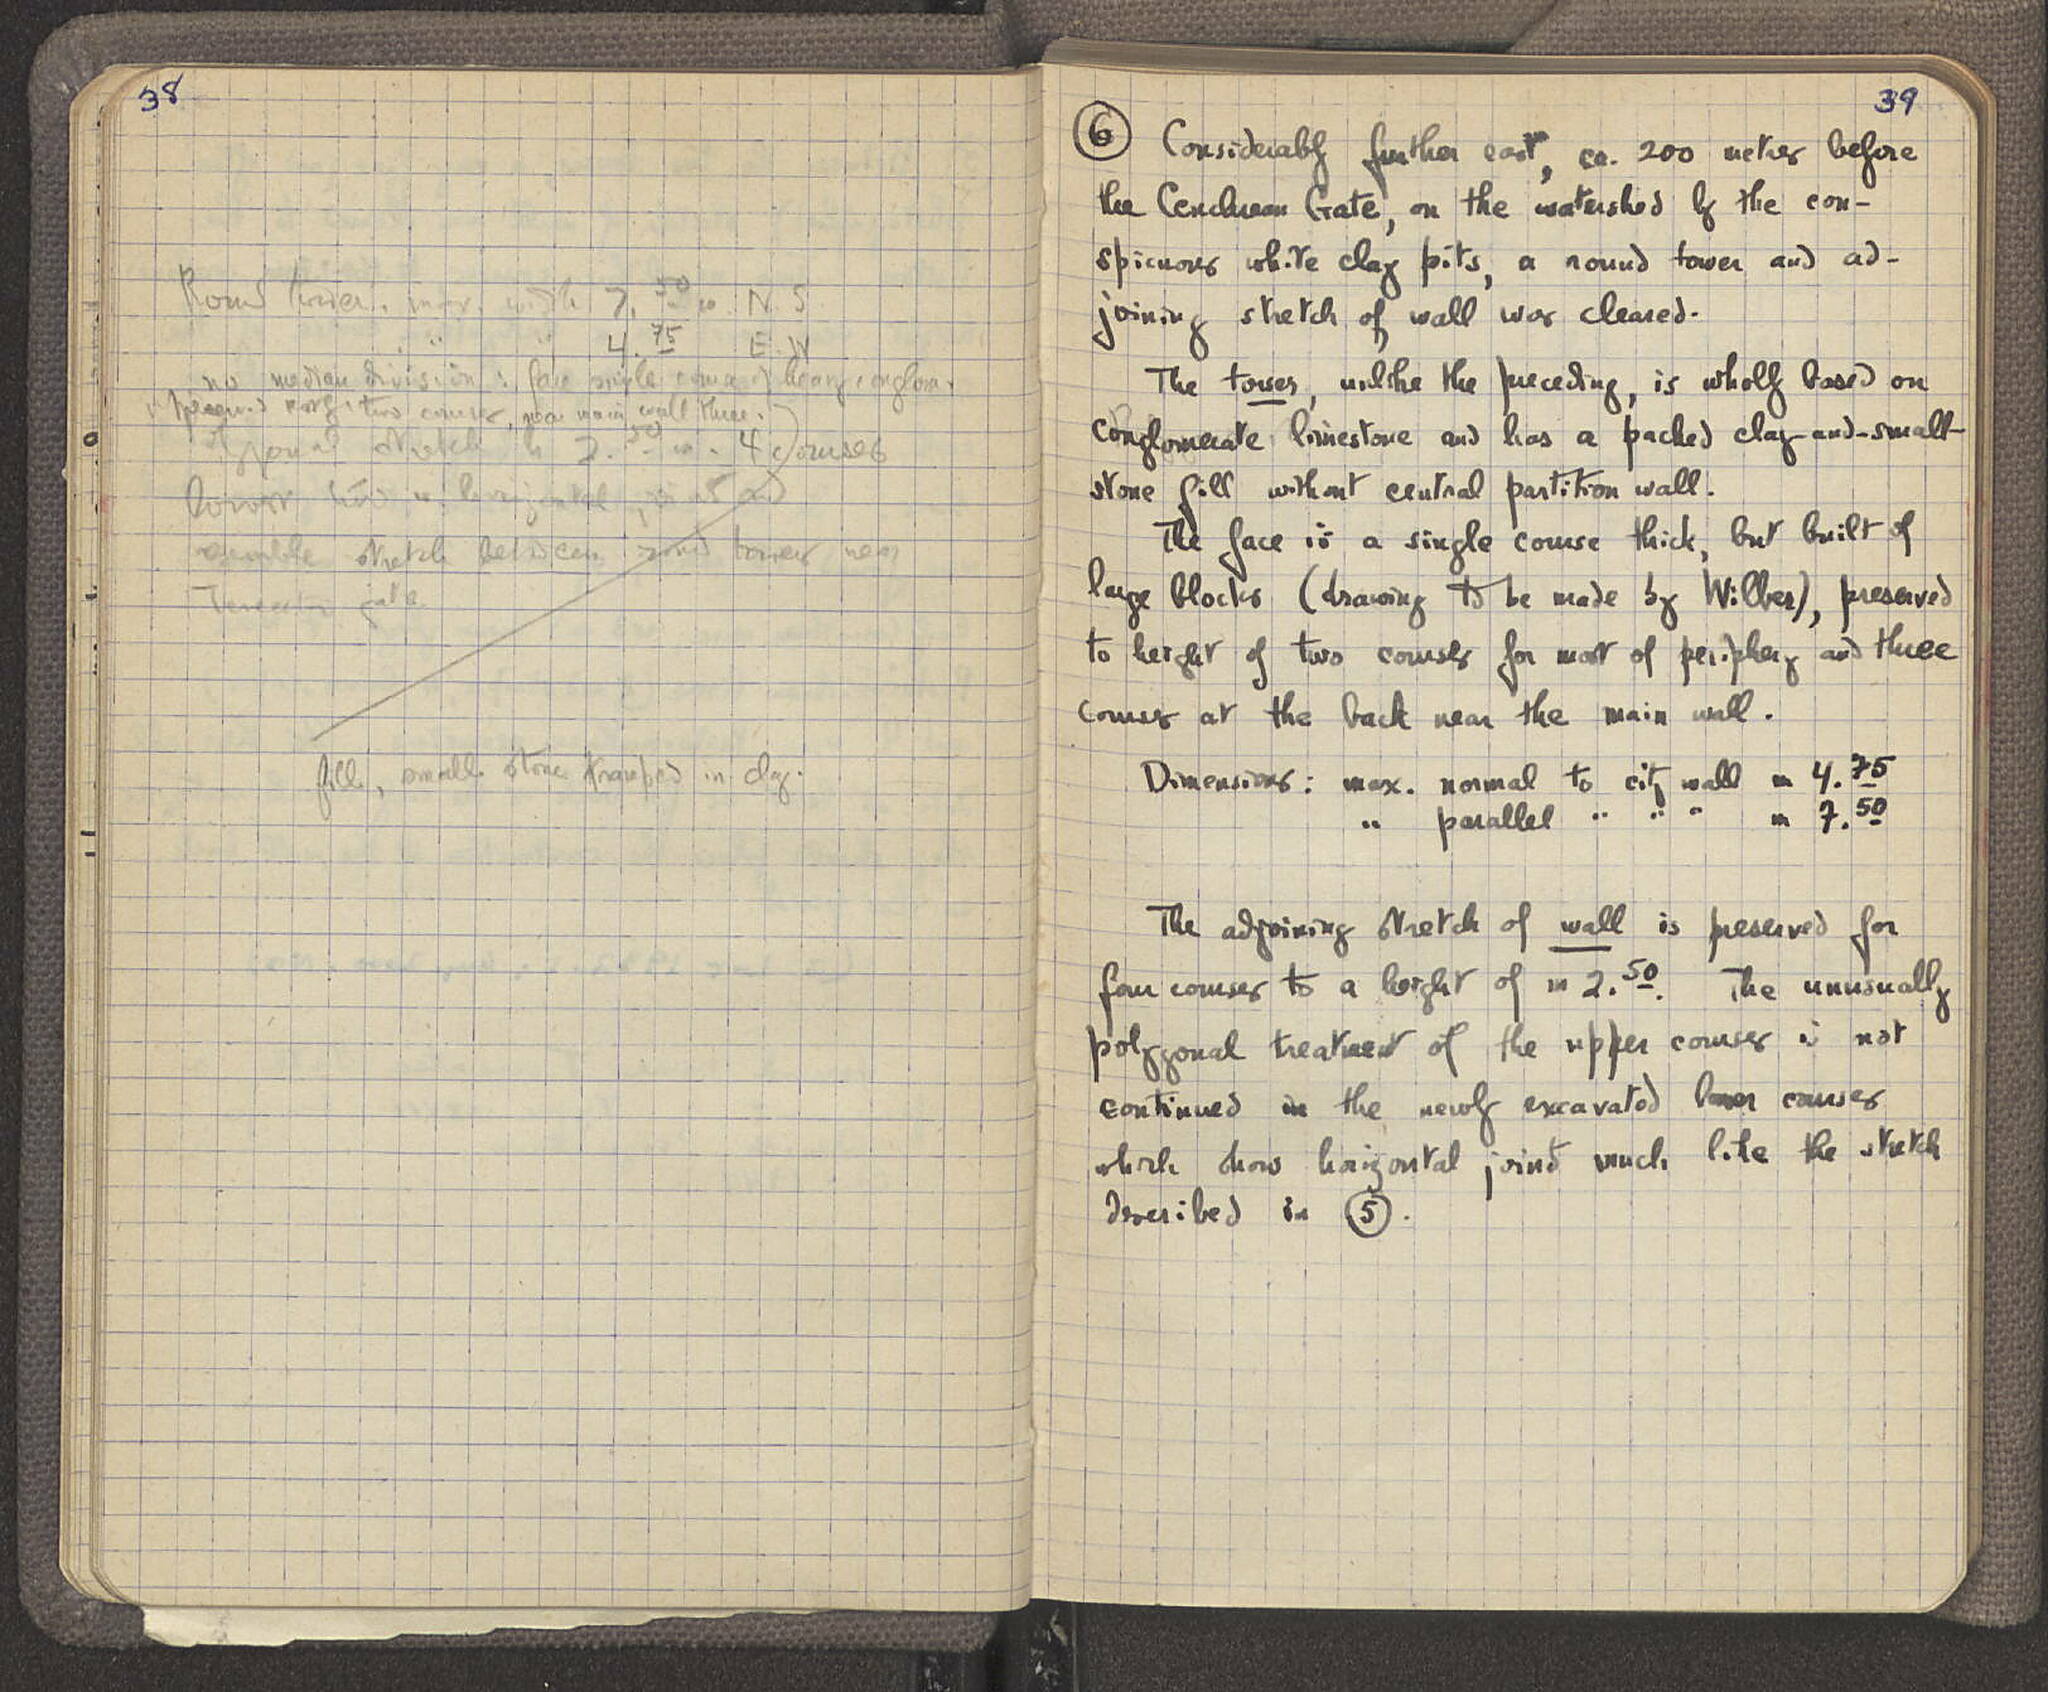 38
Round tower. max. width 7.50 m N.S.
" " 4.75 E.W
no median division: face single course of heavy conglom.
preserved two courses, near main wall three.
Polygonal stretch h 2.50 m. 4 courses
lowest horizontal joint and
resemble stretch between round towers near
gate.
fill, small stone tramped in clay.
39
⑥ Considerably further east, ca. 200 metres before
the Cenchrean Gate, on the watershed by the con-
spicuous white clay pits, a round tower and ad-
joining stretch of wall was cleared.
The tower, unlike the preceding, is wholly based on
conglomerate limestone and has a packed clay-and-small-
stone fill without central partition wall.
The face is a single course thick, but built of
large blocks (drawing to be made by Wilber), preserved
to height of two courses for most of periphery and three
courses at the back near the main wall.
Dimensions: max. normal to city wall m 4.75
" parallel " " " m 7.50
The adjoining stretch of wall is preserved for
four courses to a height of m 2.50. The unusually
polygonal treatment of the upper courses is not
continued in the newly excavated lower courses
which show horizontal joints much like the stretch
described in ⑤.